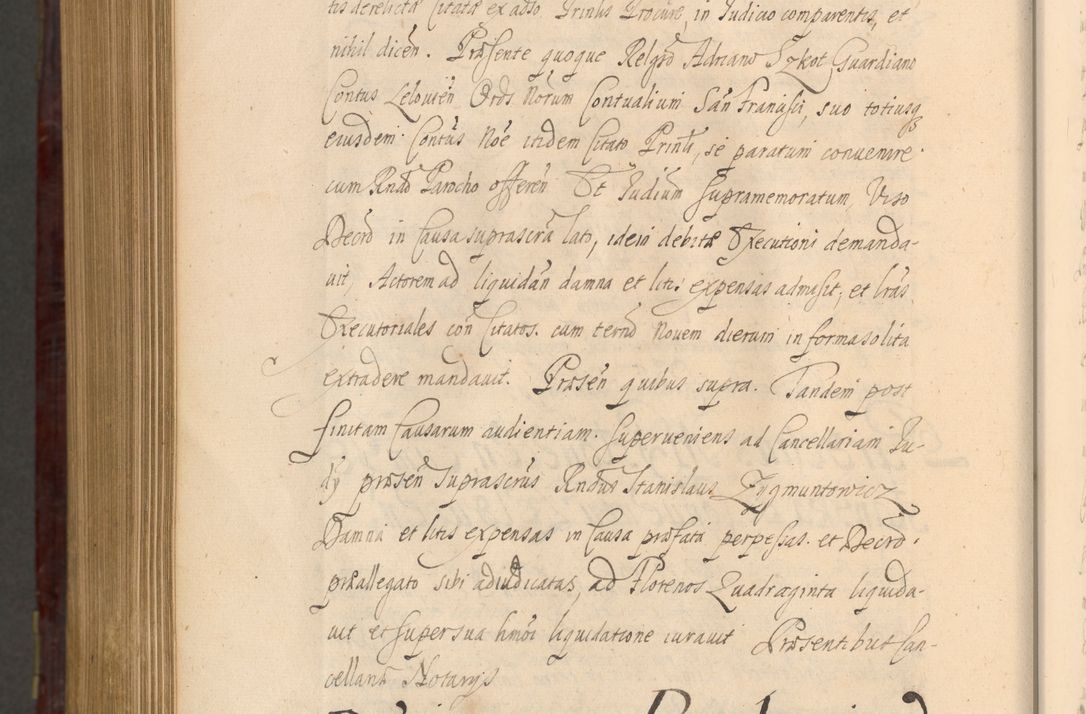 tis derelicta Citatæ ex adso Prinlis Procure, in Judicio comparentis, et
nihil dicen. Præsente quoque Relgso Adriano Szkot Guardiano
Contus Leloven Ords Norum Contualium San Francisci, suo totiusq
eiusdem Contus Noe itidem Citato Prinli, se paratum convenire
cum Rndo Parocho offeren Et Judium supramemoratum, Viso
Decro in Causa suprascra lato, ideoi debitæ Executioni demanda-
vit, Actorem ad liquidan damna et litis expensas admisit, et lras
Executoriales con Citatos. cum termo Novem dierum in forma solita
extradere mandavit. Præsen quibus supra. Tandem post
finitam Causarum audientiam. superveniens ad Cancellariam Ju-
dij præsen suprascrus Rndus Stanislaus Zygmuntowicz
Damna et litis expensas in Causa præfata perpessas. et Decro
præallegato sibi adiudicatas, ad Florenos Quadraginta liquida-
vit et super sua hmoi liquidatione iuravit Præsentibus Can-
cellariæ Notarys